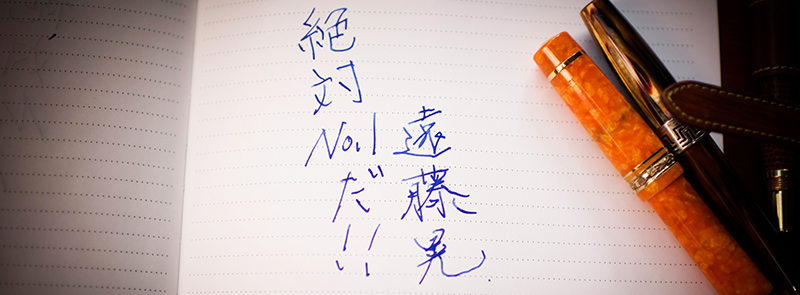 遠藤晃
絶対No.1だ!!